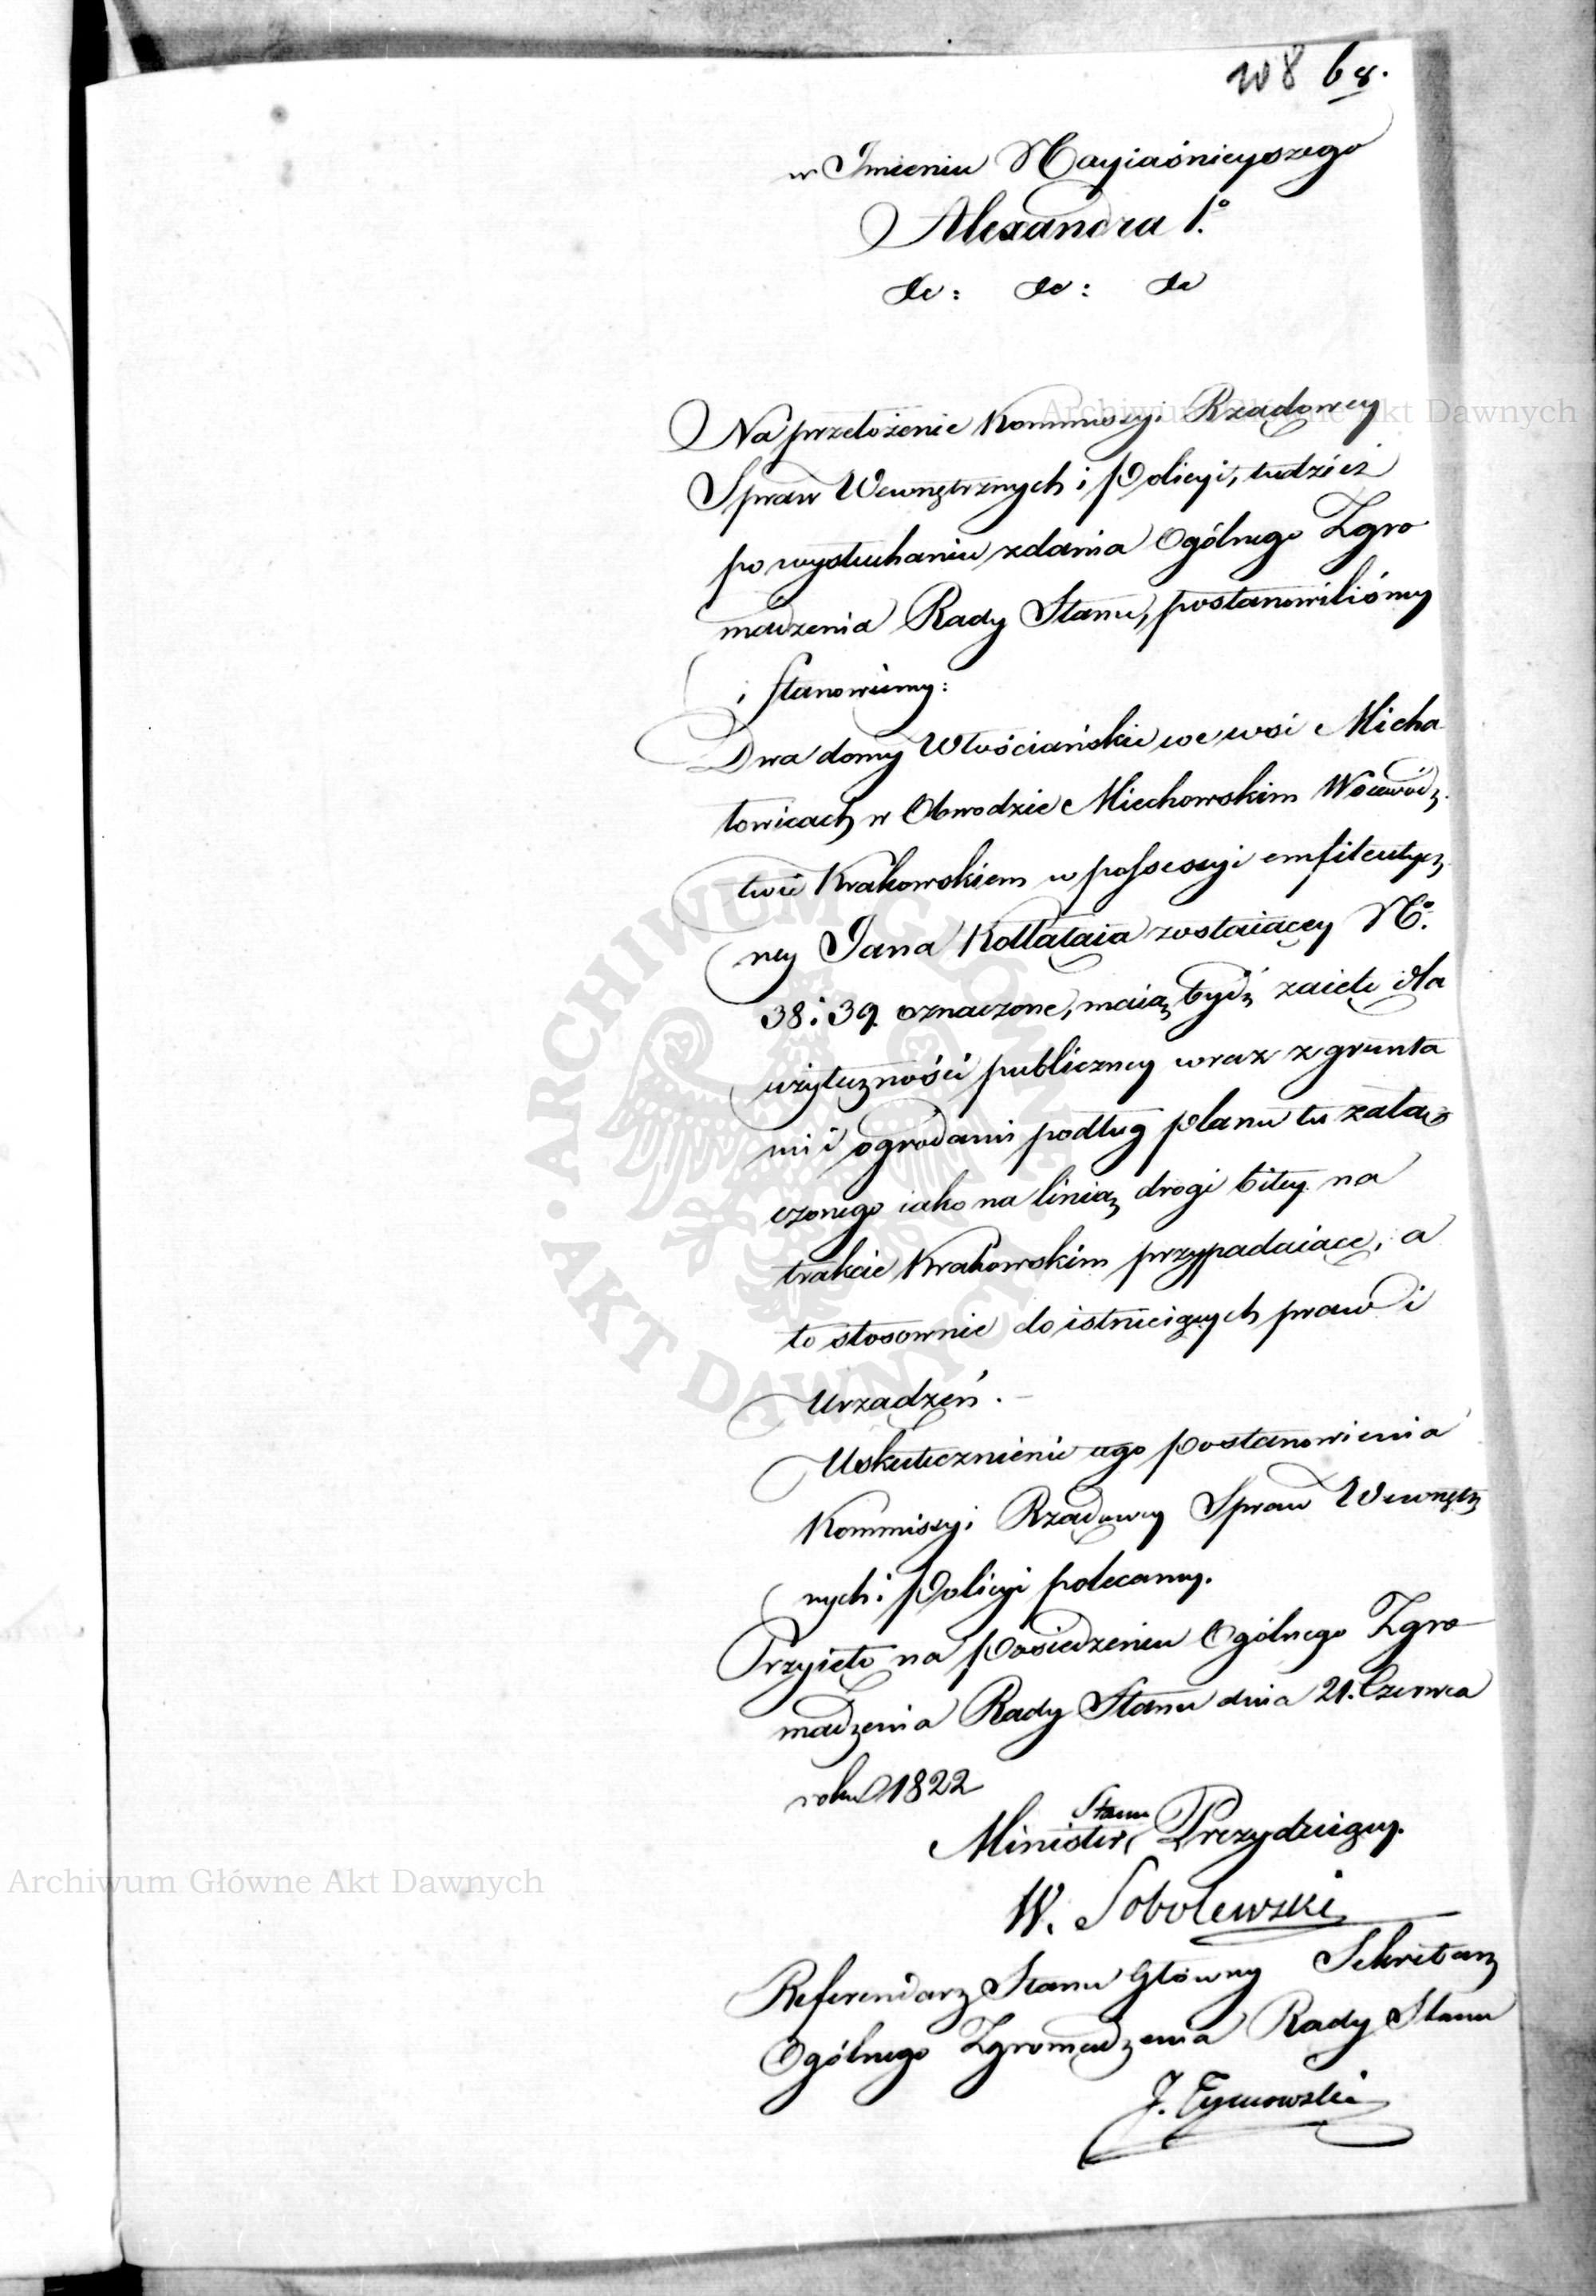 108 68.
w Imieniu Nayiaśnieyszego
Alexandra 1.º
&c: &c: &c
Na przełożenie Kommissyi Rządowey
Spraw Wewnętrznych i Policyi, tudzież
po wysłuchaniu zdania Ogólnego Zgro
madzenia Rady Stanu, postanowiliśmy
i stanowiemy:
Dwa domy Włościańskie we wsi Micha
łowicach w Obwodzie Miechowskim Woiewódz
twie Krakowskiem w possessyi emfiteutycz
ney Jana Kołłątaia zostaiącey Nº.
38 i 39. oznaczone, maią bydź zaięte dla
użyteczności publiczney wraz z grunta
mi i ogrodami podług planu tu załą
czonego iako na linią drogi bitey na
trakcie Krakowskim przypadaiące, a
to stosownie do istnieiących praw i
Urządzeń. -
Uskutecznienie tego postanowienia
Kommissyi Rządowey Spraw Wewnętrz
nych i Policyi polecamy.
Przyięto na posiedzeniu Ogólnego Zgro
madzenia Rady Stanu dnia 21. Czerwca
roku 1822
Minister Stanu Prezyduiący.
W. Sobolewski
Referendarz Stanu Główny Sekretarz
Ogólnego Zgromadzenia Rady Stanu
J. Tymowski
Archiwum Główne Akt Dawnych
Archiwum Główne Akt Dawnych
ARCHIWUM GŁÓWNE • AKT DAWNYCH •